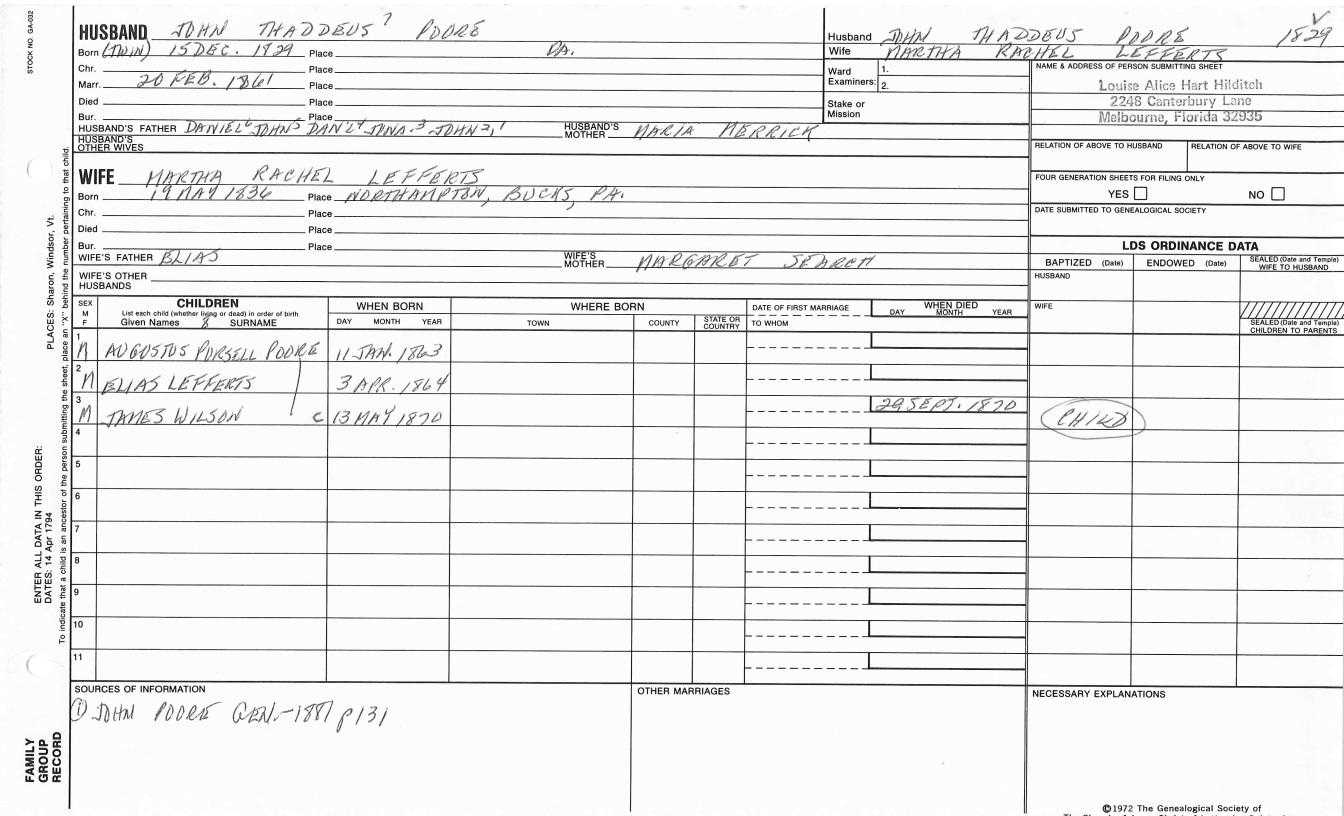 STOCK NO. GA-002
HUSBAND JOHN THADDEUS 7 POORE
Born (TWIN) 15 DEC. 1829 Place PA.
Chr. Place
Marr. 20 FEB. 1861 Place
Died Place
Bur. Place
HUSBAND'S FATHER DANIEL6 JOHN5 DAN'L4 JONA.3 JOHN2,1 HUSBAND'S MOTHER MARIA MERRICK
HUSBAND'S OTHER WIVES
Husband JOHN THADDEUS POORE 1829
Wife MARTHA RACHEL LEFFERTS
Ward Examiners: 1.
2.
Stake or Mission
NAME & ADDRESS OF PERSON SUBMITTING SHEET
Louise Alice Hart Hilditch
2248 Canterbury Lane
Melbourne, Florida 32935
RELATION OF ABOVE TO HUSBAND RELATION OF ABOVE TO WIFE
FOUR GENERATION SHEETS FOR FILING ONLY
YES NO
DATE SUBMITTED TO GENEALOGICAL SOCIETY
WIFE MARTHA RACHEL LEFFERTS
Born 19 MAY 1836 Place NORTHAMPTON, BUCKS, PA.
Chr. Place
Died Place
Bur. Place
WIFE'S FATHER ELIAS WIFE'S MOTHER MARGARET SEARCH
WIFE'S OTHER HUSBANDS
LDS ORDINANCE DATA
BAPTIZED (Date) ENDOWED (Date) SEALED (Date and Temple) WIFE TO HUSBAND
HUSBAND
WIFE
SEALED (Date and Temple) CHILDREN TO PARENTS
SEX M F
CHILDREN
List each child (whether living or dead) in order of birth
Given Names SURNAME
WHEN BORN
DAY MONTH YEAR
WHERE BORN
TOWN COUNTY STATE OR COUNTRY
DATE OF FIRST MARRIAGE
TO WHOM
WHEN DIED
DAY MONTH YEAR
1 M AUGUSTUS PURSELL POORE 11 JAN. 1863
2 M ELIAS LEFFERTS 3 APR. 1864
3 M JAMES WILSON C 13 MAY 1870 29 SEPT. 1870 CHILD
4
5
6
7
8
9
10
11
SOURCES OF INFORMATION
① JOHN POORE GEN.-1881 p131
OTHER MARRIAGES
NECESSARY EXPLANATIONS
©1972 The Genealogical Society of
PLACES: Sharon, Windsor, Vt.
To indicate that a child is an ancestor of the person submitting the sheet, place an "X" behind the number pertaining to that child.
ENTER ALL DATA IN THIS ORDER:
DATES: 14 Apr 1794
FAMILY
GROUP
RECORD